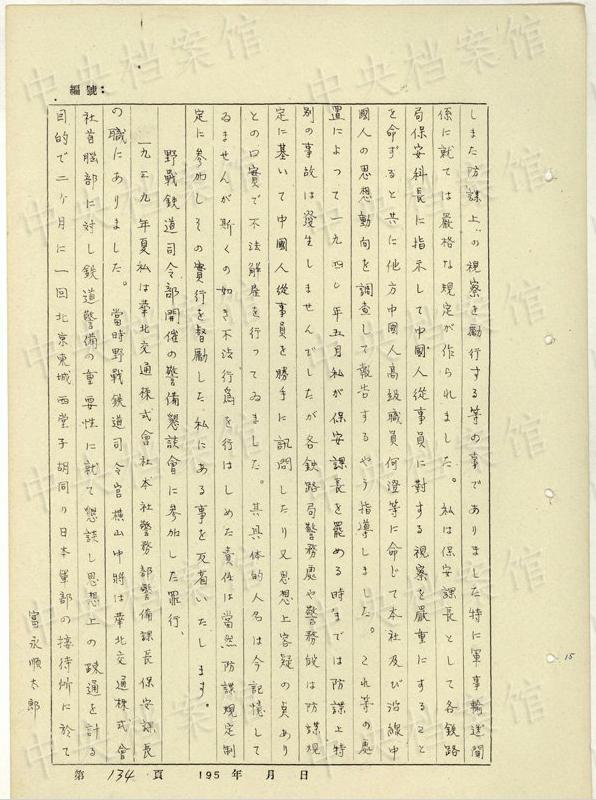 編號:
しまた防諜上の視察を励行する等の事でありました特に軍事輸送関
係に就ては厳格な規定が作られました。私は保安課長として各鉄路
局保安科長に指示して中國人從事員に対する視察を嚴重にすること
を命ずると共に他方中國人高級職員何澄等に命じて本社及び沿線中
國人の思想動向を調査して報告するやう指導しました。これ等の處
置によって一九四〇年五月私が保安課長を罷める時までは防諜上特
別の事故は發生しませんでしたが各鉄路局警務處や警務段は防諜規
定に基いて中國人從事員を勝手に訊問したり又思想上容疑の点あり
との口實で不法解雇を行ってゐました。其具体的人名は今記憶して
ゐませんが斯くの如き不法行爲を行はしめた責任は当然防諜規定制
定に参加しその實行を督励した私にある事を反省いたします。
野戰鉄道司令部開催の警備懇談會に参加した罪行、
一九三九年夏私は華北交通株式會社本社警務部警備課長保安課長
の職にありました。當時野戰鉄道司令官横山中將は華北交通株式會
社首脳部に対し鉄道警備の重要性に就て懇談し思想上の疎通を計る
目的で二ケ月に一回北京東城西堂子胡同の日本軍部の接待所に於て
富永順太郎
15
第 134 頁 195 年 月 日
中央档案馆